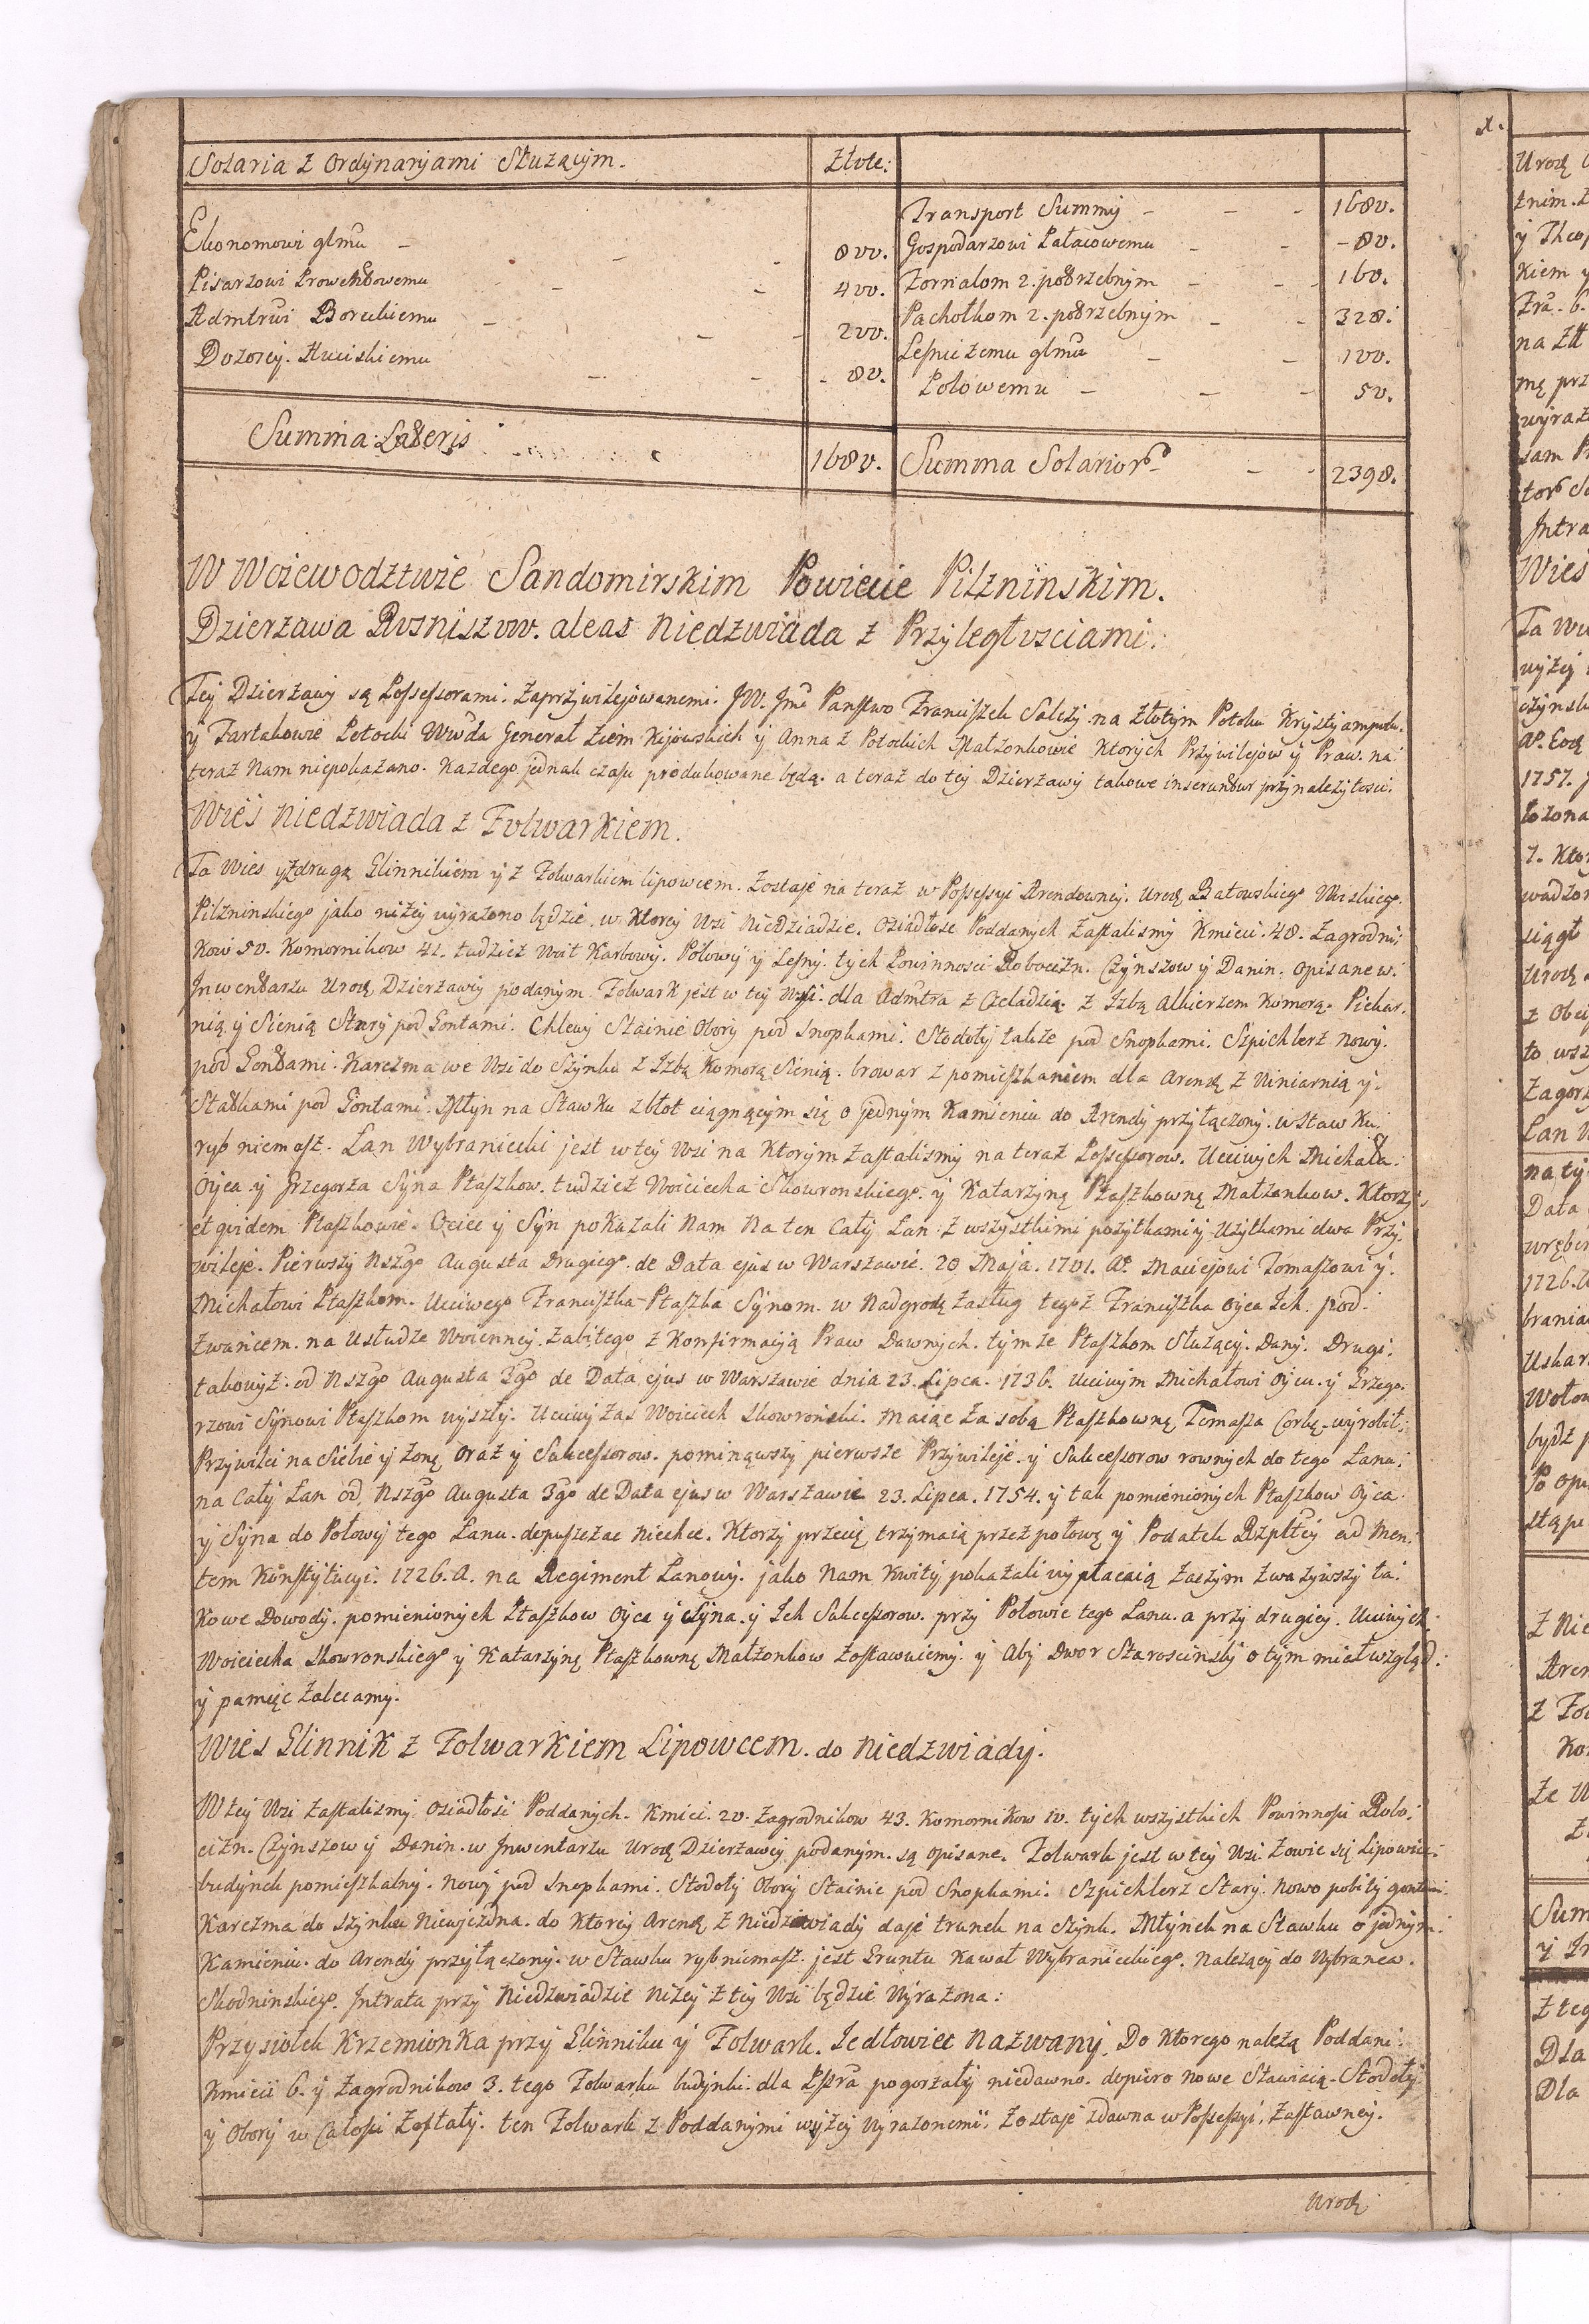 Solaria z Ordynaryami Służącym. Złote:
Ekonomowi glmu - 800.
Pisarzowi Prowentowemu - - 400.
Admtrwi Boreckiemu - - 200.
Dozorcy. - - 80.
Summa Lateris 1680.
Transport Summy - - - 1680.
Gospodarzowi Pałacowemu - - - 80.
Fornalom 2. potrzebnym - - 160.
Pachołkom 2. potrzebnym - - 328.
Leśniczemu glmu - - 100.
Polowemu - - - 50.
Summa Solarior - - 2398.
W Woiewodztwie Sandomirskim Powiecie Pilzninskim.
Dzierzawa Rosniszow. aleas Niedzwiada z Przyległosciami.
Tey Dzierzawy są Possessorami. Zaprzywileiowanemi. JW. Jmć Panstwo Franciszek Salezy na Złotym Potoku Krystyampolu.
y Tartakowie Potocki Wwda Generał Ziem Kijowskich y Anna z Potockich Małżonkowie Ktorych Przywilejow y Praw. na
teraz Nam niepokazano. Kazdego jednak czasu produkowane będą. a teraz do tey Dzierzawy takowe inseruntur przynalezytosci.
Wieś Niedzwiada z Folwarkiem.
Ta Wies y z drugą Glinnikiem y z Folwarkiem lipowcem. Zostaje na teraz w Possessyi Arendowney. Urod. Batowskiego Woiskiego.
Pilzninskiego jako nizey wyrazono będzie. w Ktorey Wsi Niedziadzie. Osiadłose Poddanych Zastalismy Kmieci. 48. Zagrodni
Kow 50. Komornikow 41. tudziez Woit Karbowy. Polowy y Lesny. tych Powinnosci Robocizn. Czynszow y Danin. opisane w.
Inwentarzu Urod. Dzierzawcy podanym. Folwark jest w tey Wsi. dla Admtra z Czeladzią. z Izbą Alkierzem Komorą. Piekar.
nią y Sienią Stary pod Gontami. Chlewy Stainie Obory pod Snopkami. Stodoły takze pod Snopkami. Szpichlerz nowy.
pod Gontami. Karczma we Wsi do Szynku z Izbą Komorą Sienią. browar z pomieszkaniem dla Arend. z Winiarnią y.
Statkami pod Gontami. Młyn na Stawku z błot ciągnącym się o jednym Kamieniu do Arendy przyłączony. w Stawku.
ryb niemasz. Łan Wybraniecki jest w tey Wsi na Ktorym Zastalismy na teraz Possessorow. Uciwych Michała.
Oyca y Grzegorza Syna Ptaszkow. tudziez Woiciecha Skowronskiego. y Katarzynę Ptaszkownę Małżonkow. Ktorzy
et quidem Ptaszkowie. Ociec y Syn pokazali Nam Na ten Cały Łan z wszystkimi pozytkami y Uzytkami dwa Przy.
wileje. Pierwszy Nszgo Augusta Drugiego. de Data ejus w Warszawie. 20 Maja. 1701. Ao. Maciejowi Tomaszowi y.
Michałowi Ptaszkom. Uciwego Franciszka Ptaszka Synom. w Nadgrodę Zasług tegoż Franciszka Oyca Ich. pod.
Zwancem. na Usłudze Woienney. Zabitego z Konfirmacyą Praw Dawnych. tymze Ptaszkom Służący. Dany. Drugi.
takowyż. od Nszgo Augusta 3go de Data ejus w Warszawie dnia 23. Lipca. 1736. Uciwym Michałowi Oycu. y Grzego.
rzowi Synowi Ptaszkom wyszły. Uciwy Zas Woiciech Skowronski. Maiąc Za sobą Ptaszkownę Tomasza Corkę. wyrobił.
Przywilei na Siebie y Zonę Oraz y Sukcessorow. pominąwszy pierwsze Przywileje. y Sukcessorow rownych do tego Łanu.
na Cały Łan od Nszgo Augusta 3go de Data ejus w Warszawie 23. Lipca. 1754. y tak pomienionych Ptaszkow Oyca.
y Syna do Połowy tego Łanu. depuszczac niechce. Ktorzy przecię trzymaią przez połowę y Podatek Rzpltey ad Men.
tem Konstytucyi. 1726. A. na Regiment Łanowy. jako Nam Kwity pokazali wypłacaią Zaczym Zwazywszy ta.
Kowe Dowody. pomienionych Ptaszkow Oyca y Syna. y Ich Sukcessorow. przy Połowie tego Łanu. a przy drugiey. Uciwych
Woiciecha Skowronskiego y Katarzynę Ptaszkownę Małzonkow Zostawuiemy. y Aby Dwor Staroscinsky o tym miał wzgląd.
y pamięc Zalecamy.
Wies Glinnik z Folwarkiem Lipowcem. do Niedzwiady.
W tey Wsi Zastalismy Osiadłosi Poddanych. Kmieci. 20. Zagrodnikow 43. Komornikow 10. tych wszystkich Powinnosci Robo.
cizn. Czynszow y Danin. w Inwentarzu Urod. Dzierzawcy podanym. są opisane. Folwark jest w tey Wsi. Zowie się Lipowiec.
budynek pomieszkalny. Nowy pod Snopkami. Stodoły Obory Stainie pod Snopkami. Szpichlerz Stary. Nowo pobity gontami.
Karczma do szynku Niewjezdna. do Ktorey Arend. z Niedzwiady daje trunek na szynk. Młynek na Stawku o jednym.
Kamieniu. do Arendy przyłączony. w Stawku ryb niemasz. jest Gruntu Kawał Wybranieckiego. Nalezący do Wybranca.
Skodninskiego. Intrata przy Niedzwiadzie Nizey z tey Wsi będzie Wyrazona:
Przysiołek Krzemionka przy Glinniku y Folwark. Jedłowiec Nazwany. Do Ktorego nalezą Poddani.
Kmieci 6. y Zagrodnikow 3. tego Folwarku budynki. dla Pssra pogorzały niedawno. depiero Nowe Stawiaią. Stodoły
y Obory w Całosci Zostały. ten Folwark z Poddanymi wyzey Wyrazonemi. Zostaje zdawna w Possessyi. Zastawney.
Urod.